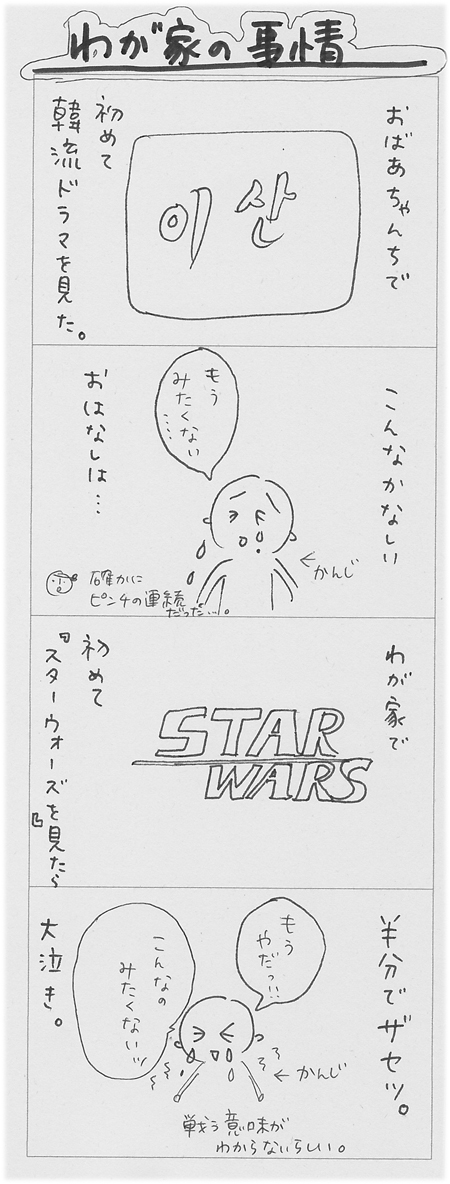 わが家の事情
おばあちゃんちで
이산
初めて
韓流ドラマを見た。
こんなかなしい
もう
みたくない
……
おはなしは…
←かんじ
確かに
ピンチの連続
だった…。
わが家で
STAR
WARS
初めて
『スターウォーズを見たら』
半分でザセツ。
もう
やだっ!!
こんなの
みたくないッ
大泣き。
←かんじ
戦う意味が
わからないらしい。